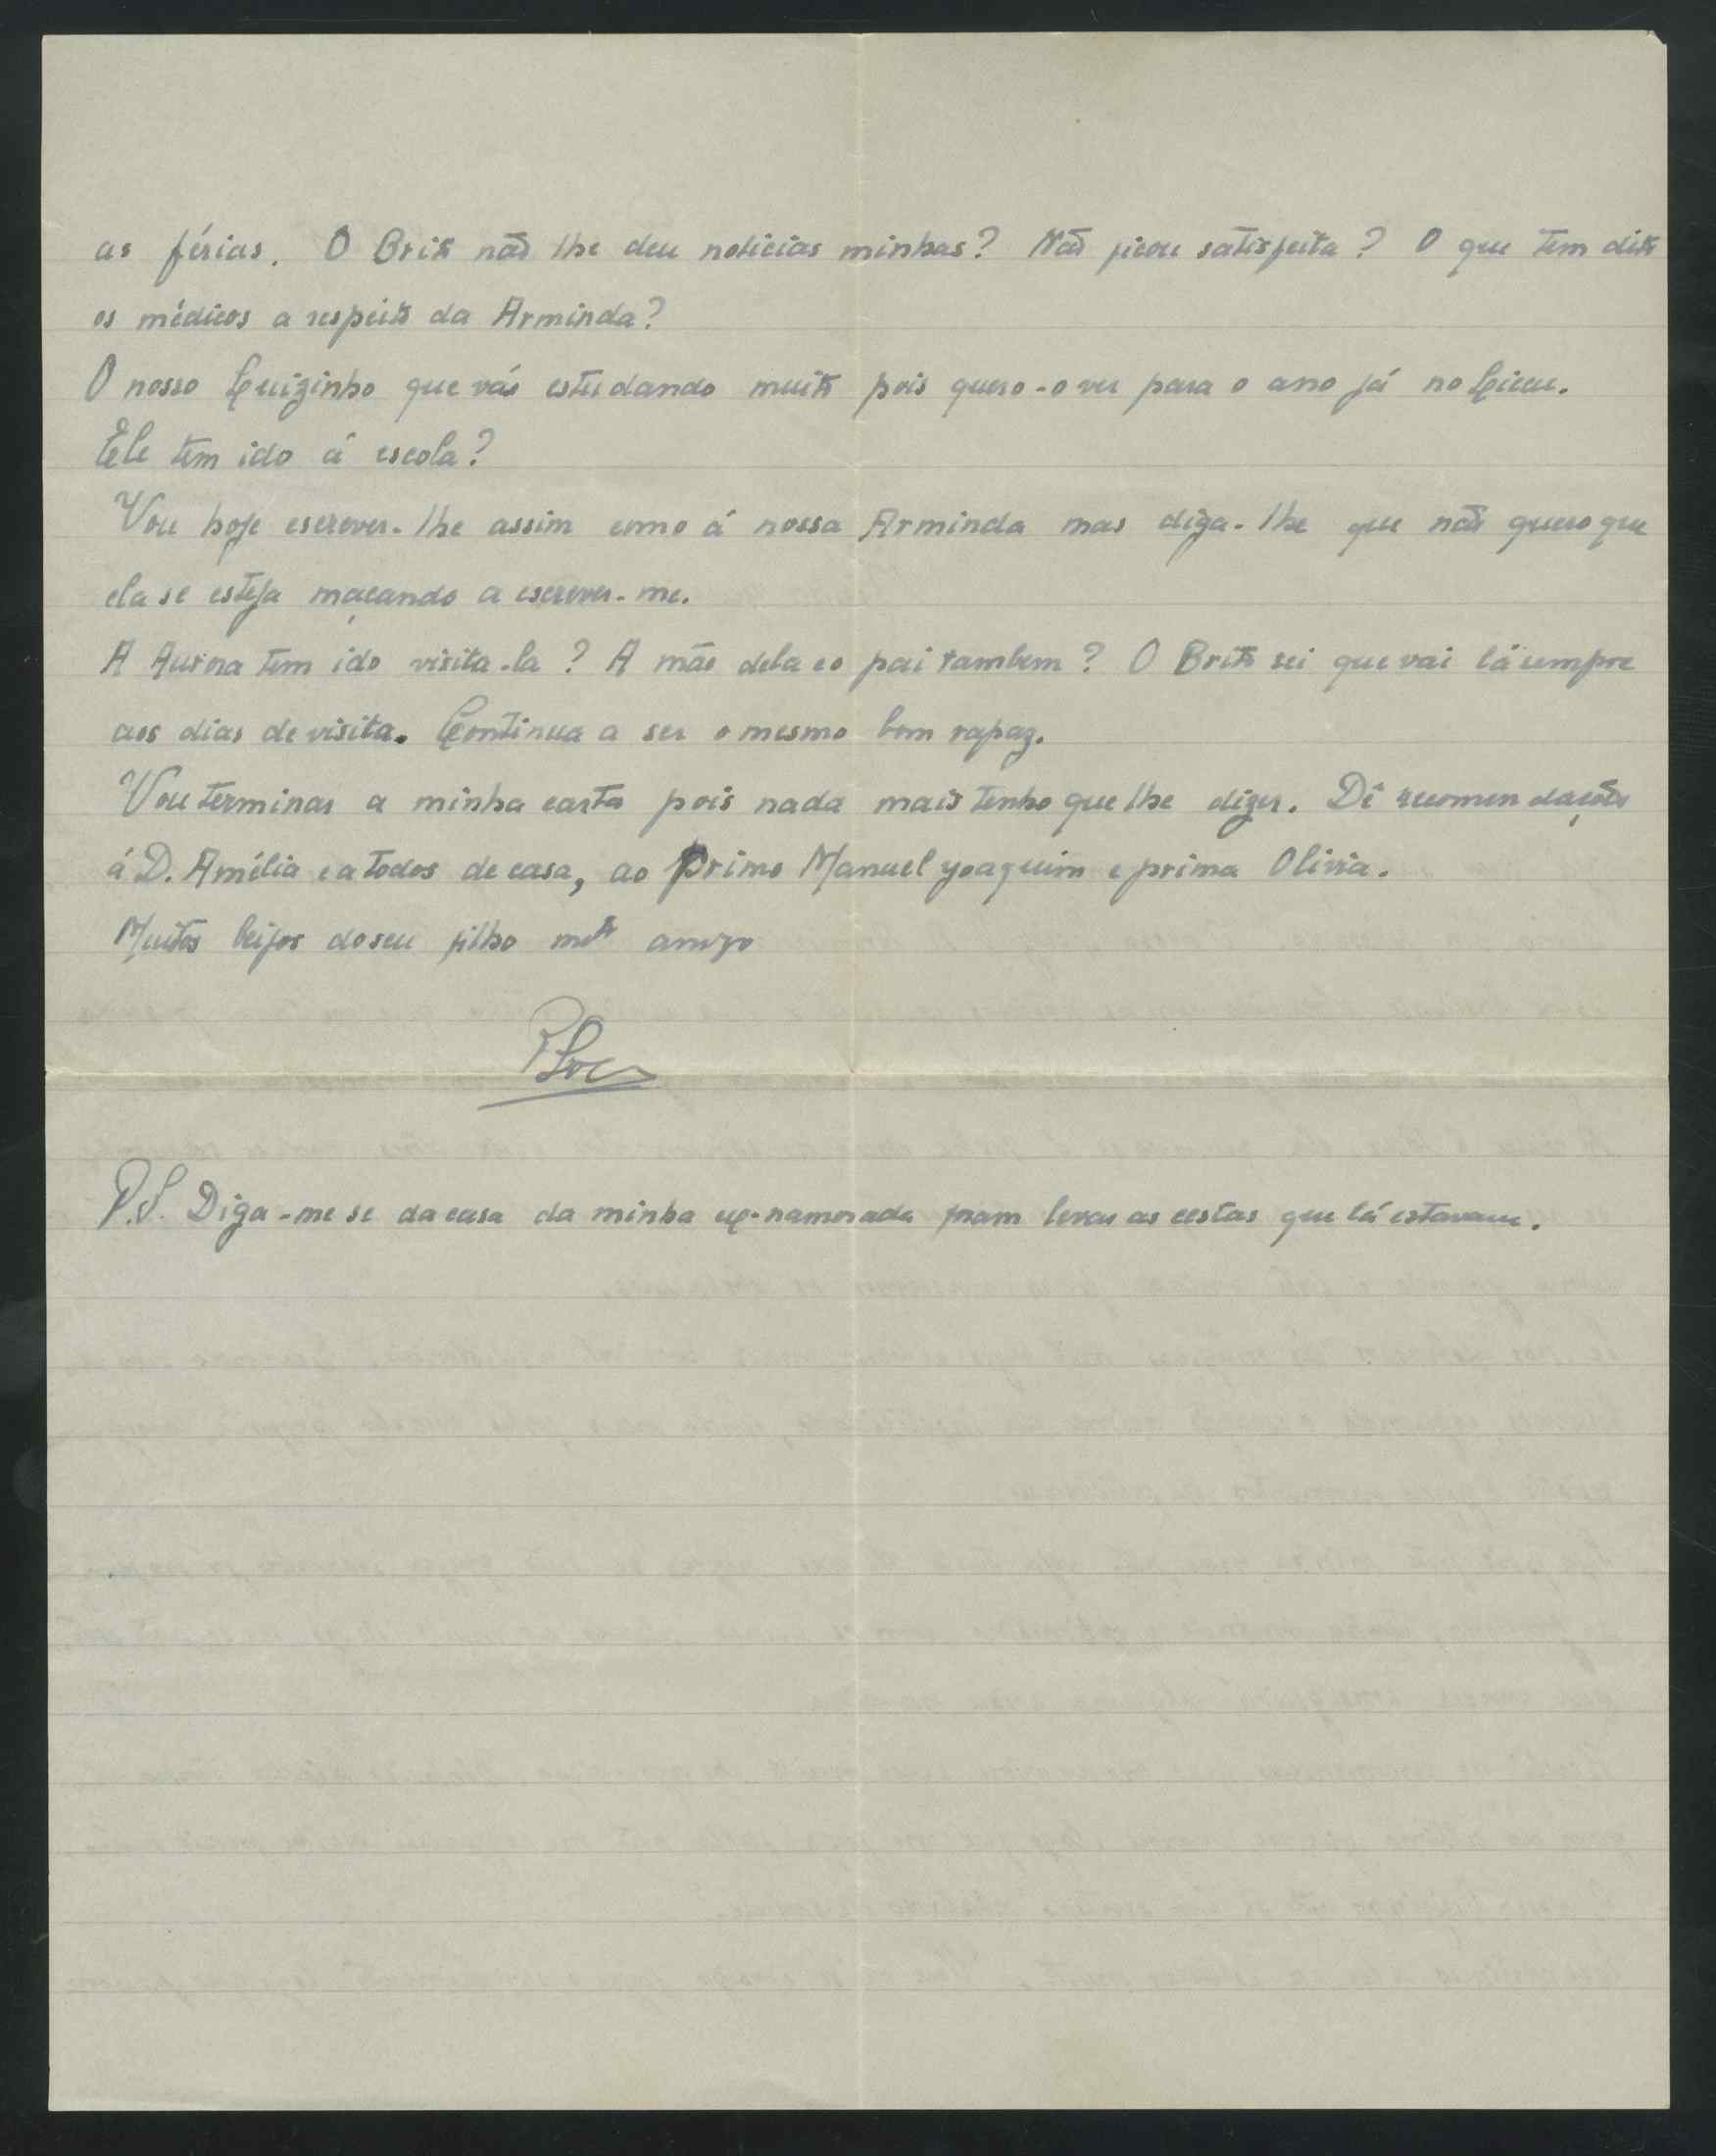 as férias. O Brito não lhe deu noticias minhas? Não ficou satisfeita? O que tem dito
os médicos a respeito da Arminda?
O nosso Luizinho que vá estudando muito pois quero-o ver para o ano já no Liceu.
Ele tem ido á escola?
Vou hoje escrever-lhe assim como á nossa Arminda mas diga-lhe que não quero que
ela se esteja maçando a escrever-me.
A Aurora tem ido visita-la? A mãe dela e o pai tambem? O Brito sei que vai lá sempre
aos dias de visita. Continua a ser o mesmo bom rapaz.
Vou terminar a minha carta pois nada mais tenho que lhe dizer. Dê recomendações
á D. Amélia e a todos de casa, ao Primo Manuel Joaquim e prima Olivia.
Muitos beijos do seu filho mto amigo
P.S. Diga-me se da casa da minha ex-namorada foram levar as cestas que lá estavam.